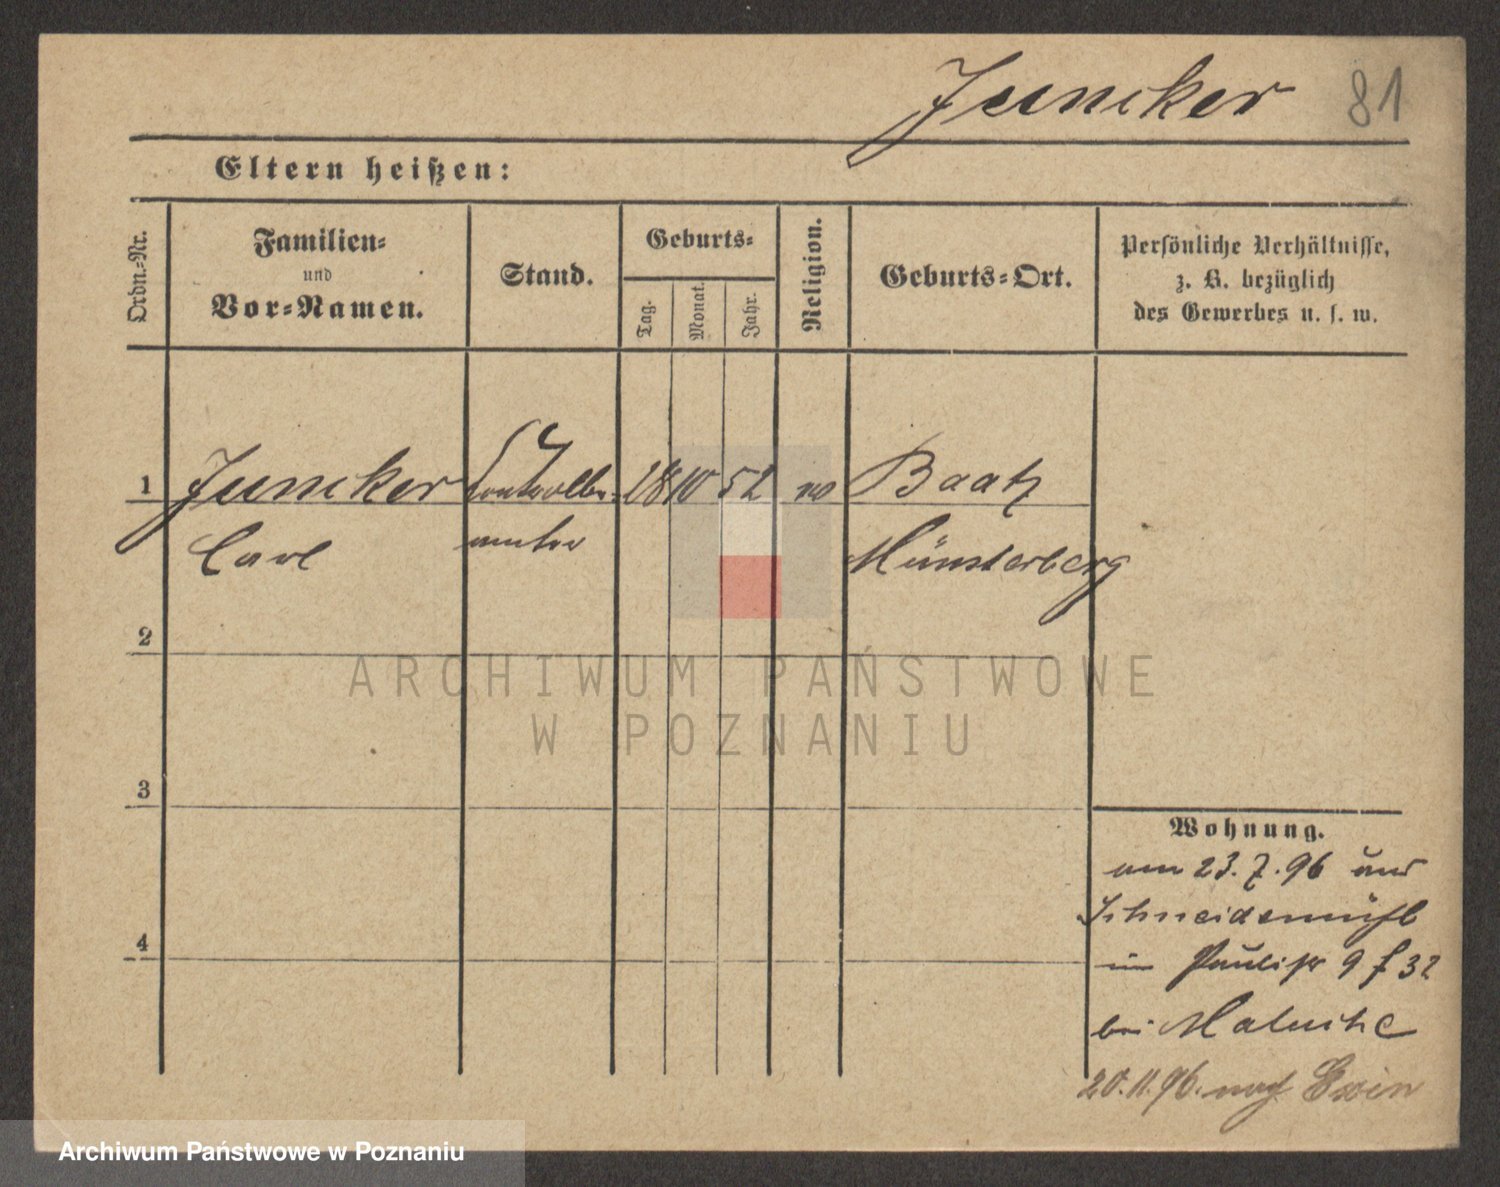 Juncker 81
Eltern heißen:
Ordn.-Nr.
Familien-
und
Vor-Namen.
Stand.
Geburts-
Tag.
Monat.
Jahr.
Religion.
Geburts-Ort.
Persönliche Verhältnisse,
z. B. bezüglich
des Gewerbes u. s. w.
1 Juncker 18 10 52 Baatz
Carl Münsterberg
2
ARCHIWUM PAŃSTWOWE
W POZNANIU
3
Wohnung.
am 23. 7. 96 aus
Schneidemühl
in Paulistr 9 32
4
bei
20. 11. 96. nach Exin
Archiwum Państwowe w Poznaniu